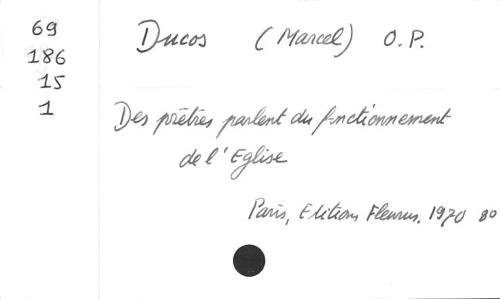 69
186
15
1
Ducos (Marcel) O.P.
Des prêtres parlent du fonctionnement
de l'Eglise
Paris, Editions Fleurus. 1970 8o